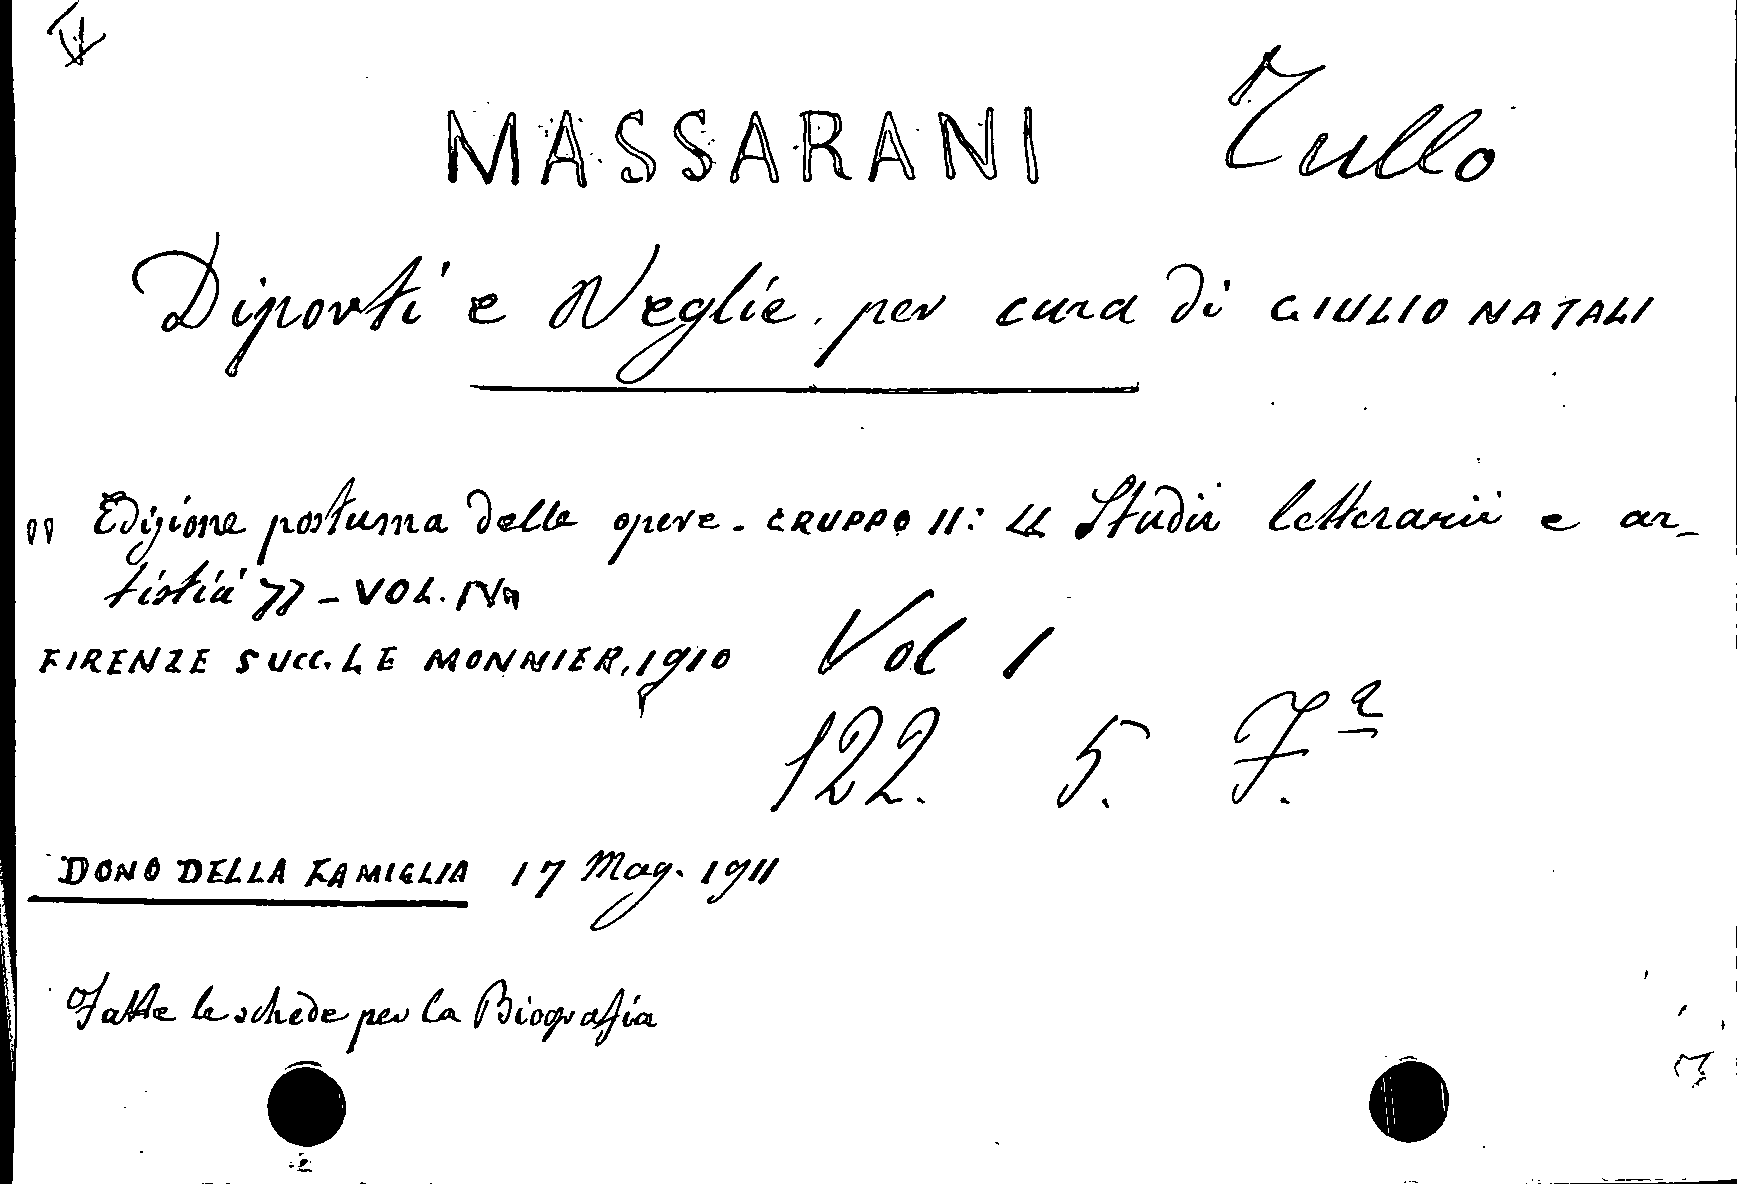 MASSARANI Tullo
Diporti e Veglie, per cura di GIULIO NATALI
" Edizione postuma delle opere - GRUPPO II: " Studii letterarii e ar-
tistici " - VOL. IVº
FIRENZE SUCC. LE MONNIER, 1910 Vol 1
122. 5. F.a
DONO DELLA FAMIGLIA 17 Mag. 1911
Fatte le schede per la Biografia